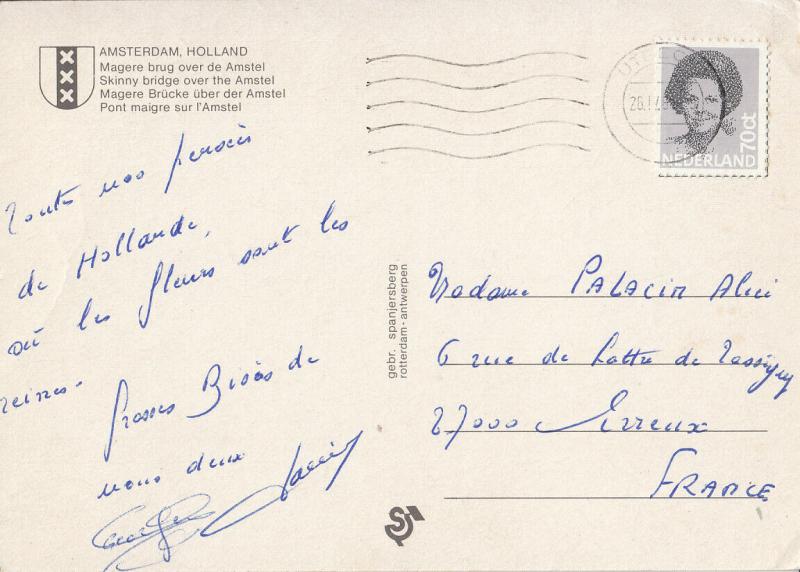 AMSTERDAM, HOLLAND
Magere brug over de Amstel
Skinny bridge over the Amstel
Magere Brücke über der Amstel
Pont maigre sur l'Amstel
Toutes nos pensées
de Hollande,
où les fleurs sont les
reines.
Grosses Bises de
nous deux
gebr. spanjersberg
rotterdam-antwerpen
NEDERLAND 70ct
Madame PALACIN Alice
6 rue de Lattre de Tassigny
27000 Evreux
FRANCE